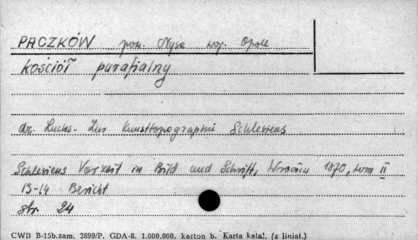 PACZKÓW pow. Nysa woj. Opole
kościół parafialny
dr. Luchs - Zur Kunsttopographie Schlesiens
Schlesiens Vorzeit in Bild und Schrift, Wrocław 1870, tom II
13-14 Bericht
str. 24
CWD B-15b.zam. 2899/P. GDA-8. 1.000.000. karton b. Karta katal. (z liniat.)